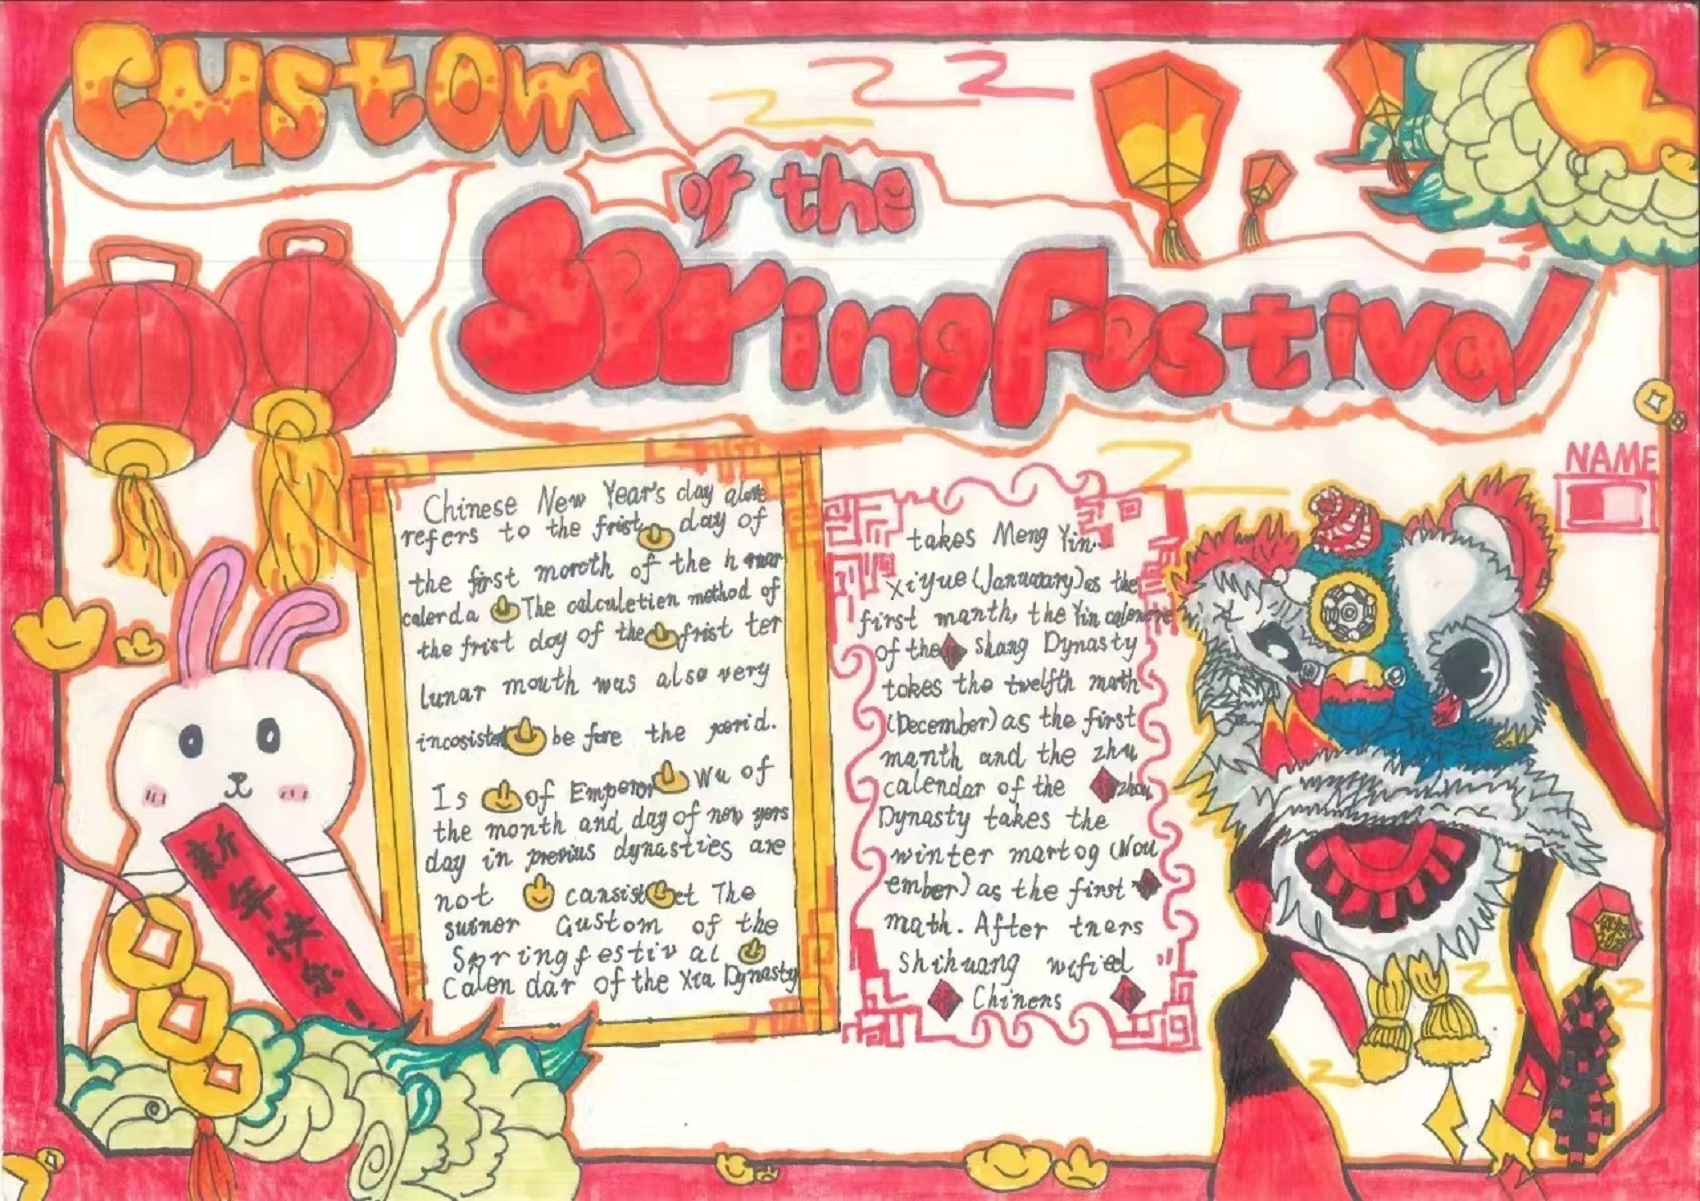 Custom
of the
Spring Festival
NAME
Chinese New Year's day alone
refers to the frist day of
the first moroth of the h
calerda The calculetien method of
the frist doy of the frist ter
lunar mouth was also very
incosistet be fore the perid.
Is of Emperor Wu of
the month and day of new yers
day in previus dynasties are
not cansistet The
sutner Gustom of the
Spring festiv al
Calen dar of the Xta Dynasty
takes Meng Yin...
xiyue (Januatary) as the
first manth, the Yin calenere
of the Shang Dynasty
tokes the twelfth moth
(December) as the first
manth and the zhu
calendar of the zhou
Dynasty takes the
winter martog (Nou
ember) as the first
math. After tners
shihuang wified
Chinens
新年快乐!